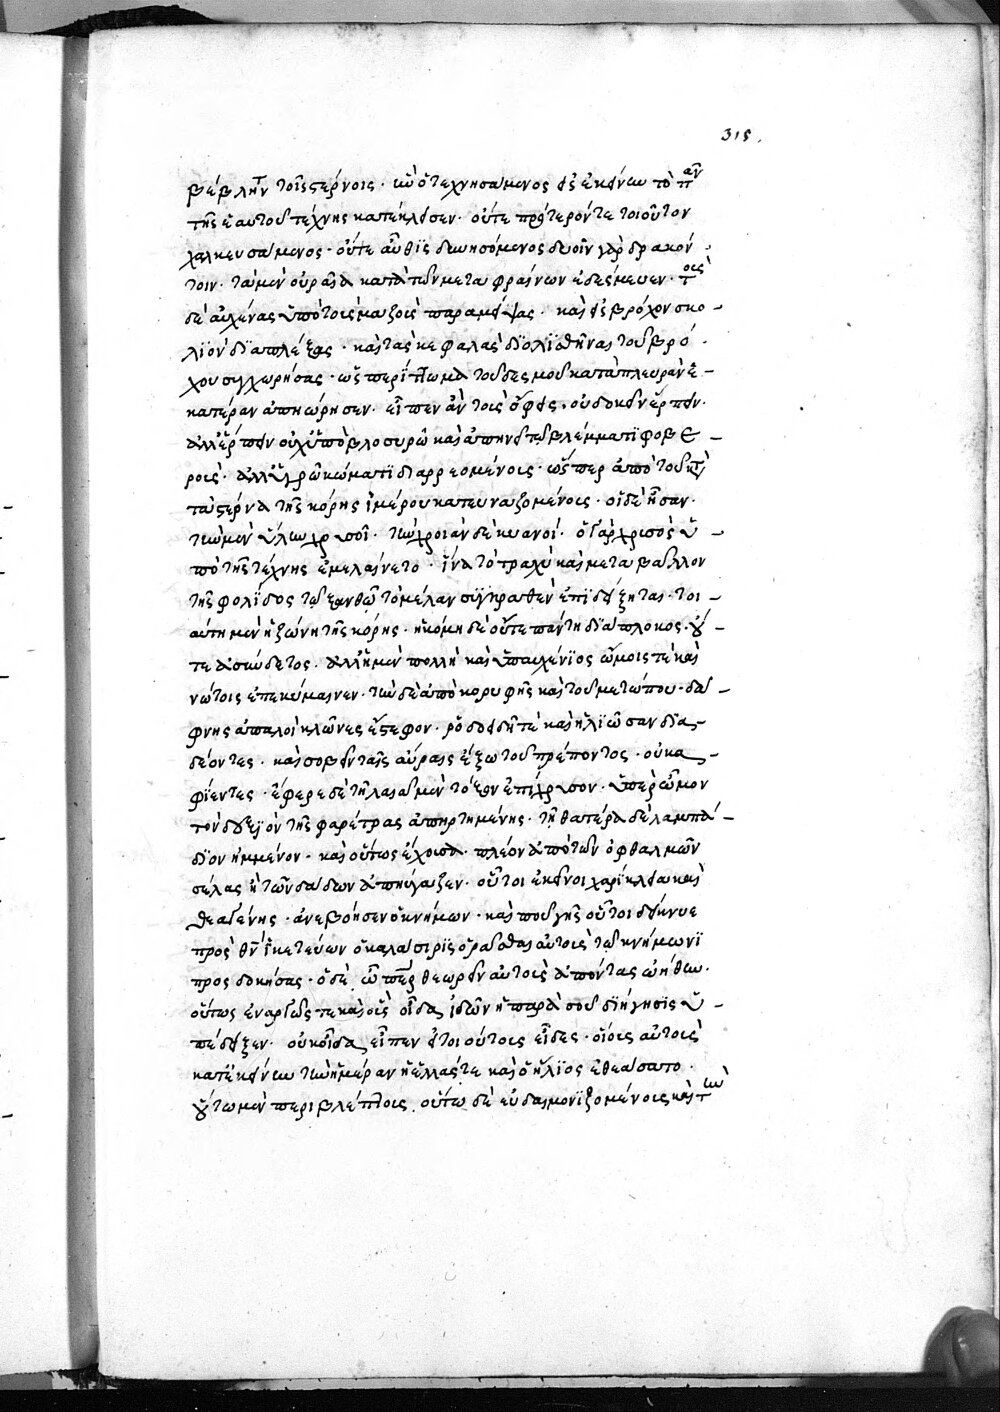 315.
βέβλητο τοῖς στέρνοις· ἣν ὁ τεχνησάμενος εἰς ἐκείνην τὸ πᾶν
τῆς ἑαυτοῦ τέχνης κατέκλεισεν· οὔτε πρότερόν τε τοιοῦτον
χαλκευσάμενος· οὔτε αὖθις δυνησόμενος δυοῖν γὰρ δρακόν
τοιν· τὰ μὲν οὐραῖα κατὰ τῶν μεταφραίνων ἐδέσμευεν· τοὺς
δὲ αὐχένας ὑπὸ τοὺς μαζοὺς παραμείψας· καὶ εἰς βρόχον σκο-
λιὸν διαπλέξας· καὶ τὰς κεφαλὰς διολισθῆναι τοῦ βρό
χου συγχωρήσας· ὡς περίττωμα τοῦ δεσμοῦ κατὰ πλευρὰν ἑ-
κατέραν ἀπῃώρησεν· εἶπεν ἂν τοὺς ὄφεις· οὐ δοκεῖν ἕρπειν·
ἀλλ' ἕρπειν οὐχ ὑπὸ βλοσυρῷ καὶ ἀπηνεῖ τῷ βλέμματι φοβε-
ροὺς· ἀλλ' ὑγρῷ κώματι διαρρεομένους· ὥσπερ ἀπὸ τοῦ κατὰ
τὰ στέρνα τῆς κόρης ἱμέρου κατευναζομένους· οἱ δὲ ἦσαν·
τὴν μὲν ὕλην χρυσοῖ· τὴν χροιὰν δὲ κυανοί· ὁ γὰρ χρυσὸς ὑ-
πὸ τῆς τέχνης ἐμελαίνετο· ἵνα τὸ τραχὺ καὶ μεταβάλλον
τῆς φολίδος τῷ ξανθῷ τὸ μέλαν συγκραθὲν ἐπιδείξηται· τοι-
αύτη μὲν ἡ ζώνη τῆς κόρης· ἡ κόμη δὲ οὔτε πάντη διάπλοκος· οὔ-
τε ἀσύνδετος· ἀλλ' ἡ μὲν πολλὴ καὶ ὑπαυχένιος ὤμοις τὲ καὶ
νώτοις ἐπεκύμαινεν· τὴν δὲ ἀπὸ κορυφῆς καὶ τοῦ μετώπου· δά-
φνης ἁπαλοὶ κλῶνες ἔστεφον· ῥοδοειδῆ τὲ καὶ ἡλιῶσαν δια-
δέοντες· καὶ σοβεῖν ταῖς αὔραις ἔξω τοῦ πρέποντος· οὐκ ἀ-
φίεντες· ἔφερε δὲ τῇ λαιᾷ μὲν τόξον ἐπίχρυσον· ὑπὲρ ὦμον
τὸν δεξιὸν τῆς φαρέτρας ἀπηρτημένης· τῇ θατέρᾳ δὲ λαμπά-
διον ἡμμένον· καὶ οὕτως ἔχουσα· πλέον ἀπὸ τῶν ὀφθαλμῶν
σέλας ἢ τῶν δᾴδων ἀπηύγαζεν· οὗτοι ἐκεῖνοι χαρίκλεια καὶ
θεαγένης· ἀνεβόησεν ὁ κνήμων· καὶ ποῦ γῆς οὗτοι δείκνυε
πρὸς θεῶν ἱκετεύων ὁ καλάσιρις ὁρᾶσθαι αὐτοὺς τῷ κνήμωνι
προσδοκήσας· ὁ δὲ, ὦ πάτερ θεωρεῖν αὐτοὺς ἀπόντας ᾠήθην·
οὕτως ἐναργῶς τε καὶ οὓς οἶδα ἰδὼν ἡ παρὰ σοῦ διήγησις ὑ-
πέδειξεν· οὐκ οἶδα, εἶπεν εἰ τοιούτους εἶδες· οἵους αὐτοὺς
κατ' ἐκείνην τὴν ἡμέραν ἡ ἑλλάς τε καὶ ὁ ἥλιος ἐθεάσατο·
οὕτω μὲν περιβλέπτους, οὕτω δὲ εὐδαιμονιζομένους καὶ τὴν